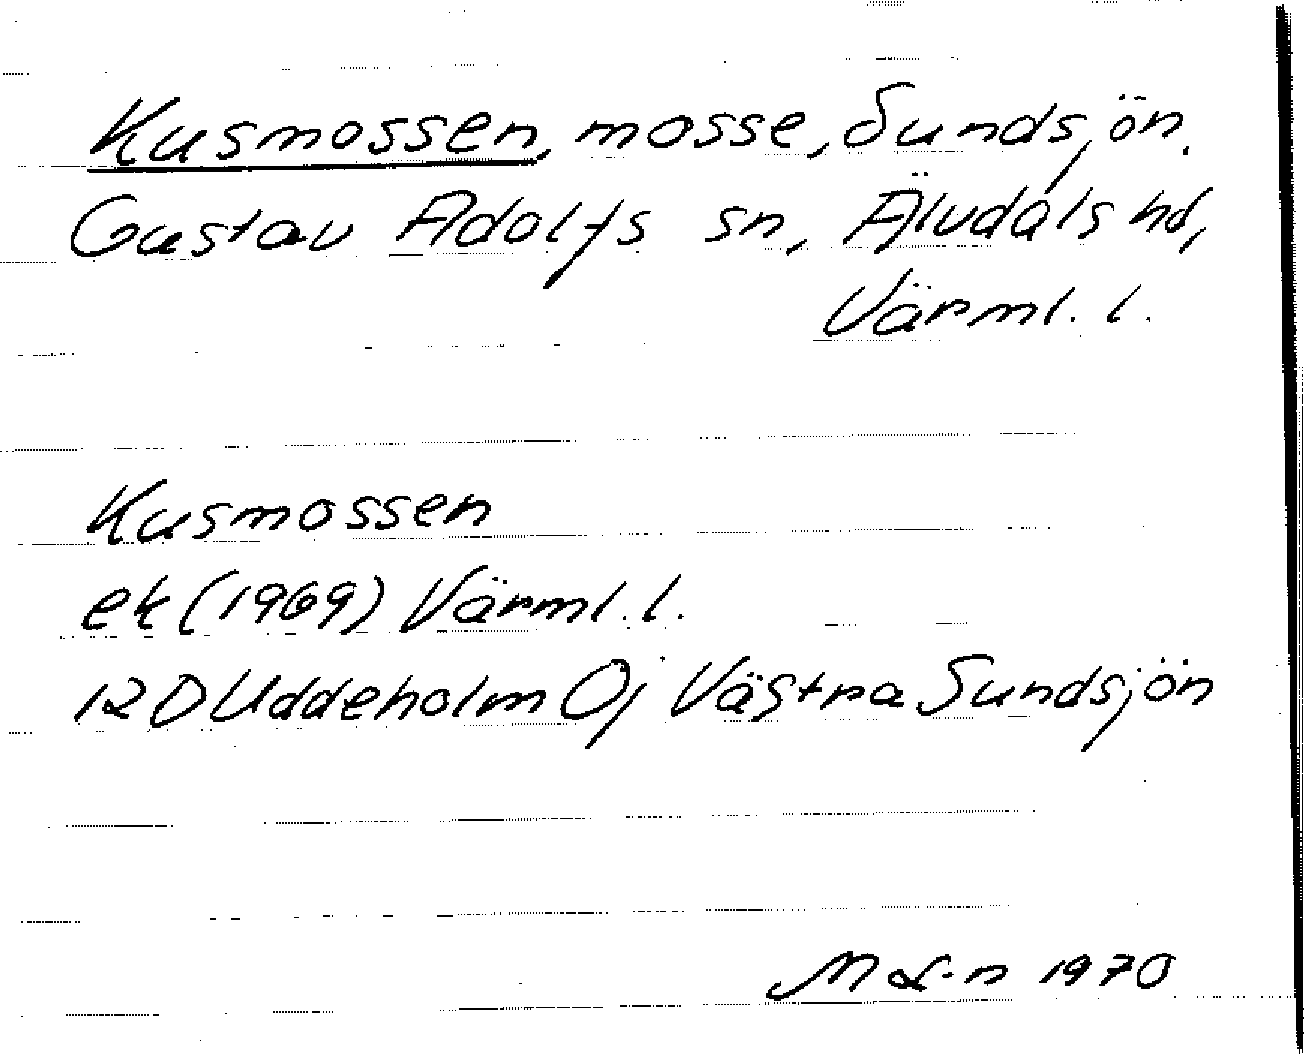 Kusmossen, mosse, Sundsjön.
Gustav Adolfs sn, Älvdals hd,
Värml. l.
Kusmossen
ek (1969) Värml. l.
12D Uddeholm 0j Västra Sundsjön
M L-n 1970